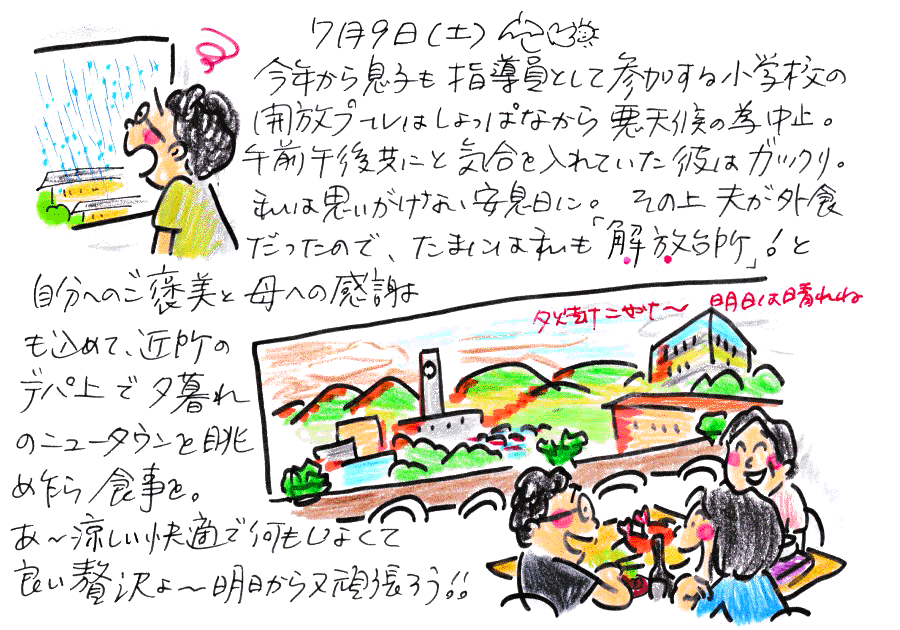 7月9日(土)
今年から息子も指導員として参加する小学校の
開放プールはしょっぱなから悪天候の為中止。
午前午後共にと気合を入れていた彼はガックリ。
私は思いがけない安息日に。その上夫が外食
だったので、たまには私も「解放台所」!と
自分へのご褒美と母への感謝
も込めて、近所の
デパ上で夕暮れ
のニュータウンを眺
め乍ら食事を。
あ〜涼しい快適で何もしなくて
良い贅沢よ〜明日から又頑張ろう!!
夕焼けこやけ〜 明日は晴れね